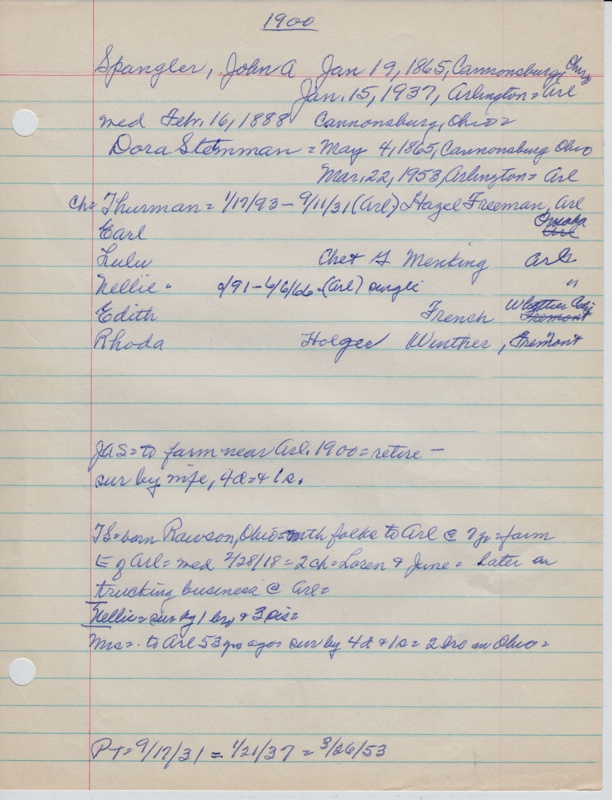 1900
Spangler, John A Jan 19, 1865, Cannonsburg, Ohio
Jan. 15, 1937, Arlington = Arl
med Febr. 16, 1888 Cannonsburg, Ohio =
Dora Steinman = May 4, 1865, Cannonsburg Ohio
Mar. 22, 1953, Arlington = Arl
ch= Thurman = 1/17/93 - 9/11/31 (Arl) Hazel Freeman, Arl
Earl Omaha Arl
Lulu Chet G Menking Arl
Nellie = /91 - 6/6/66 - (Arl) single "
Edith French Whittier Fremont
Rhoda Holger Winther, Fremont
JAS = to farm near Arl. 1900 = retire -
sur by wife, 4d = + 1s.
TS = born Rawson, Ohio = with folks to Arl @ 7 yr = farm
E of Arl = med 2/28/18 = 2 ch = Loren & June = later on
trucking business @ Arl =
Nellie = sur by 1 bro & 3 sis =
Mrs = to Arl 53 yrs ago = sur by 4d + 1s = 2 bro in Ohio =
PT = 9/17/31 = 1/21/37 = 3/26/53